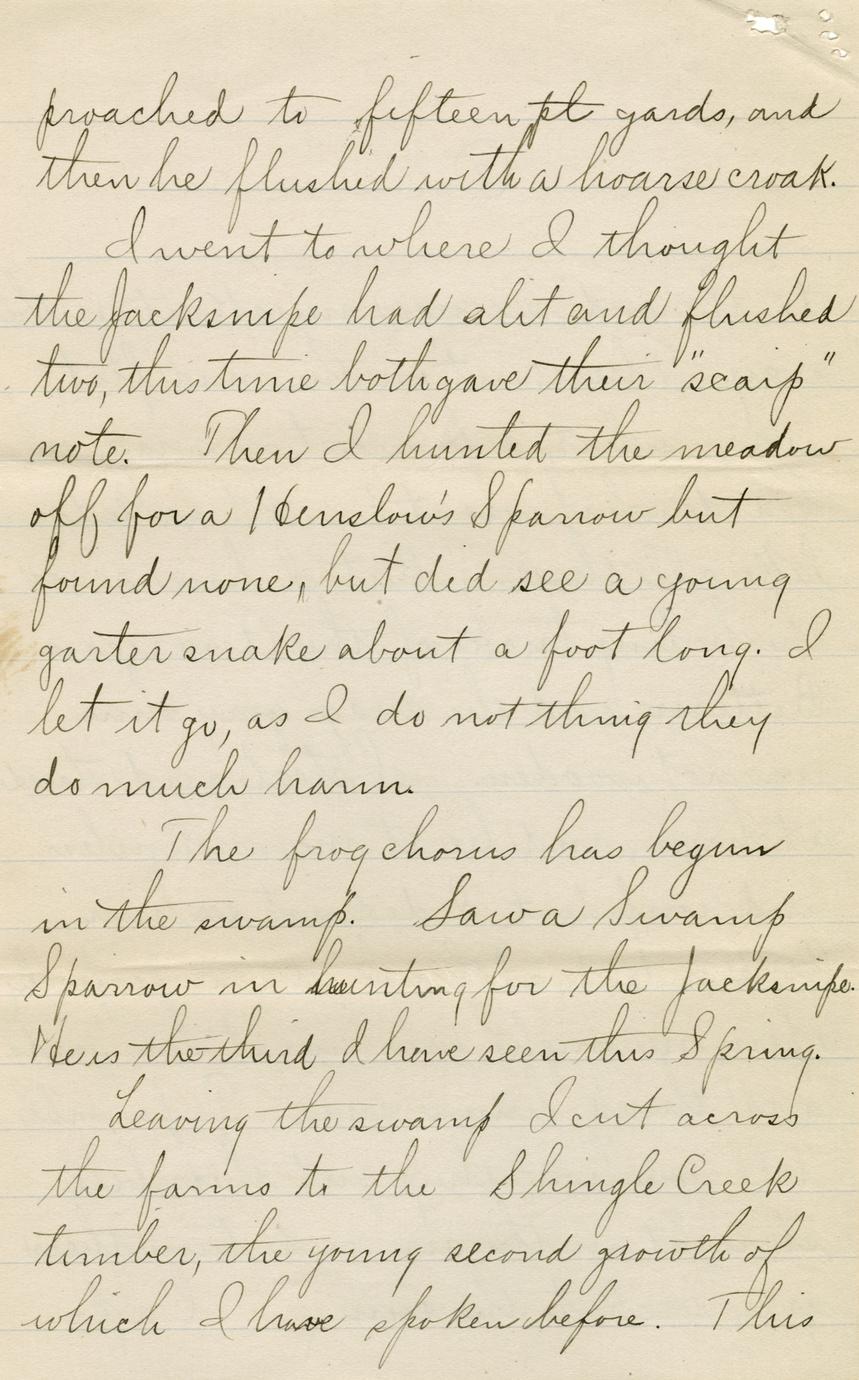 proached to fifteen pt yards, and
then he flushed with a hoarse croak.
I went to where I thought
the Jacksnipe had alit and flushed
two, this time both gave their "scaip"
note. Then I hunted the meadow
off for a Henslow's Sparrow but
found none, but did see a young
garter snake about a foot long. I
let it go, as I do not thing they
do much harm.
The frog chorus has begun
in the swamp. Saw a Swamp
Sparrow in hunting for the Jacksnipe.
He is the third I have seen this Spring.
Leaving the swamp I cut across
the farms to the Shingle Creek
timber, the young second growth of
which I have spoken before. This